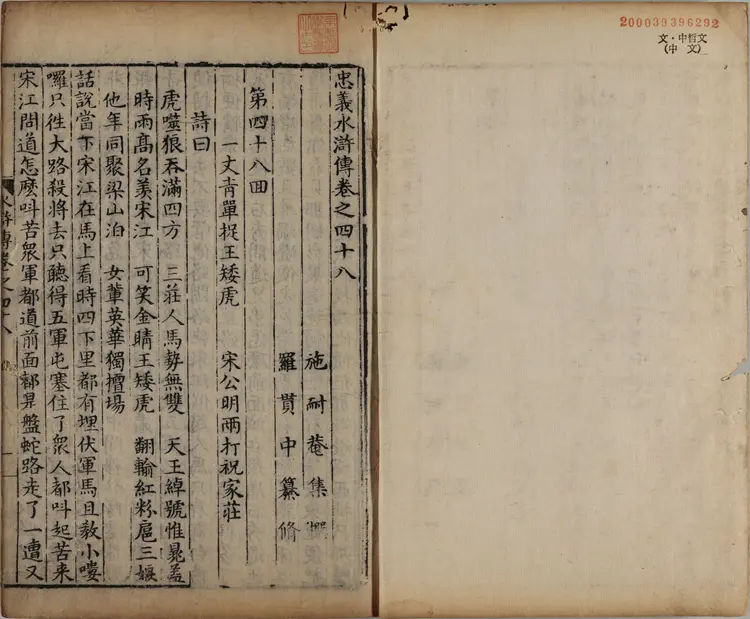 200039396292
文・中哲文
(中 文)
忠義水滸傳卷之四十八
施耐菴集撰
羅貫中纂脩
第四十八回
一丈青單捉王矮虎 宋公明兩打祝家莊
詩曰
虎噬狼吞滿四方 三莊人馬勢無雙 天王綽號惟晁蓋
時雨高名羡宋江 可笑金睛王矮虎 翻輸紅粉扈三娘
他年同聚梁山泊 女輩英華獨擅場
話說當下宋江在馬上看時四下里都有埋伏軍馬且教小嘍
囉只徃大路殺將去只聽得五軍屯塞住了衆人都叫起苦来
宋江問道怎麽叫苦衆軍都道前面都是盤蛇路走了一遭又
水滸傳卷之四十八